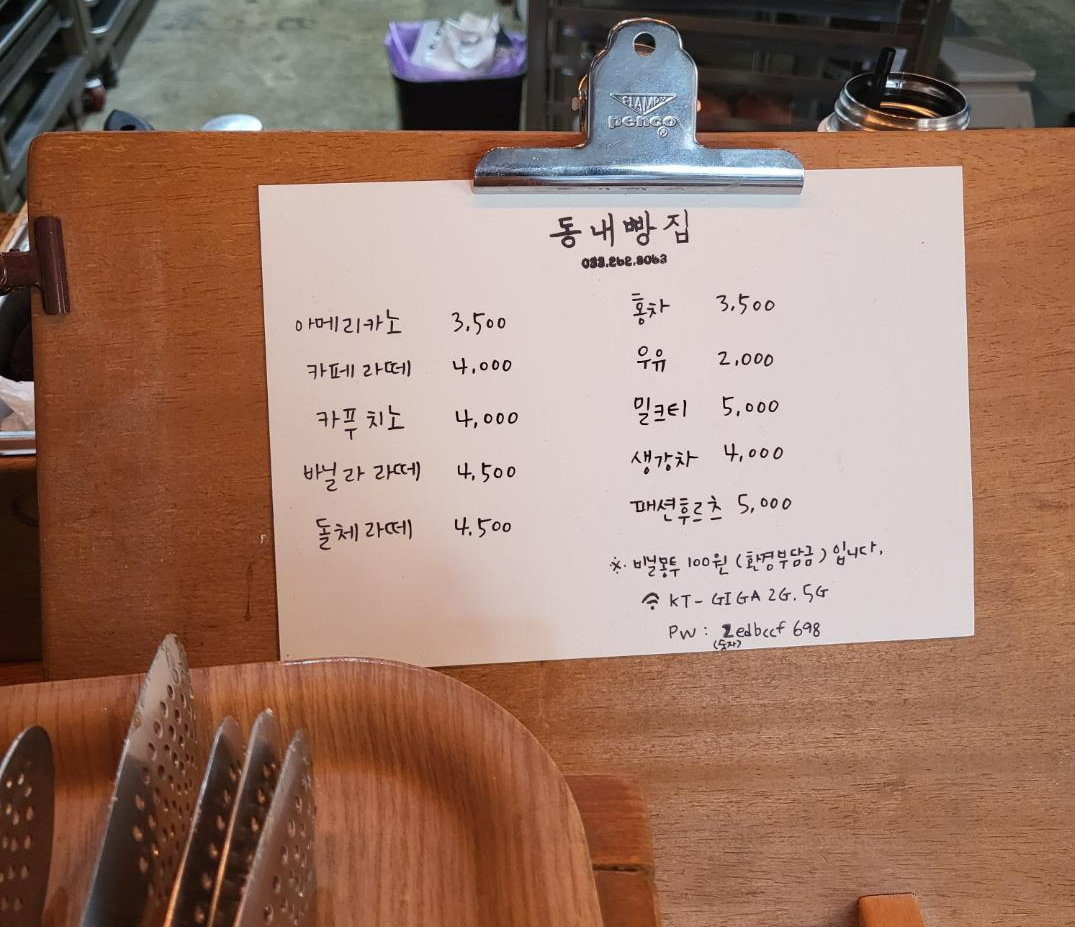 CLAMP
penco
®
동내빵집
033.262.3063
아메리카노 3,500
카페라떼 4,000
카푸치노 4,000
바닐라라떼 4,500
돌체라떼 4,500
홍차 3,500
우유 2,000
밀크티 5,000
생강차 4,000
패션후르츠 5,000
※. 비닐봉투 100원 (환경부담금) 입니다.
KT- GIGA 2G. 5G
PW : 2edbccf 698
(숫자)